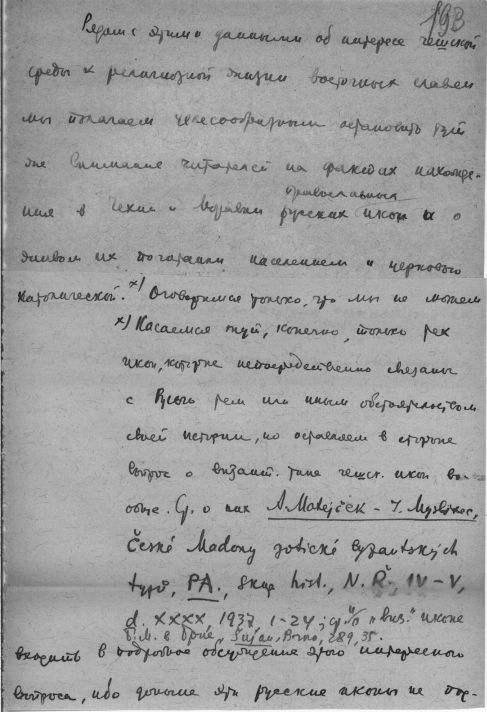 193
Рядом с этими данными об интересе чешской
среды к религиозной жизни восточных славян
мы полагаем целесообразным остановить тут
же внимание читателей на фактах нахожде-
православных
ния в Чехии и Моравии русских икон и о
живом их почитании населением и церковью
католической. х) Оговоримся только, что мы не можем
х) Касаемся тут, конечно, только тех
икон, которые непосредственно связаны
с Русью тем или иным обстоятельством
своей истории, но оставляем в стороне
вопрос о визант. типе чешск. икон во-
обще. Ср. о них A. Matějček - J. Myslivec,
České Madony gotické byzantských
typů, PA., skup. hist., N. Ř., IV-V,
d. XXXX, 1937, 1-24; ср. о "виз." иконе
Б. М. в Брне, Šujan, Brno, 289, 35.
входить в подробное обсуждение этого интересного
вопроса, ибо доныне эти русские иконы не под-